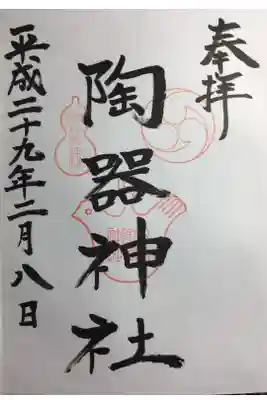 奉拝
陶器神社
平成二十九年二月八日